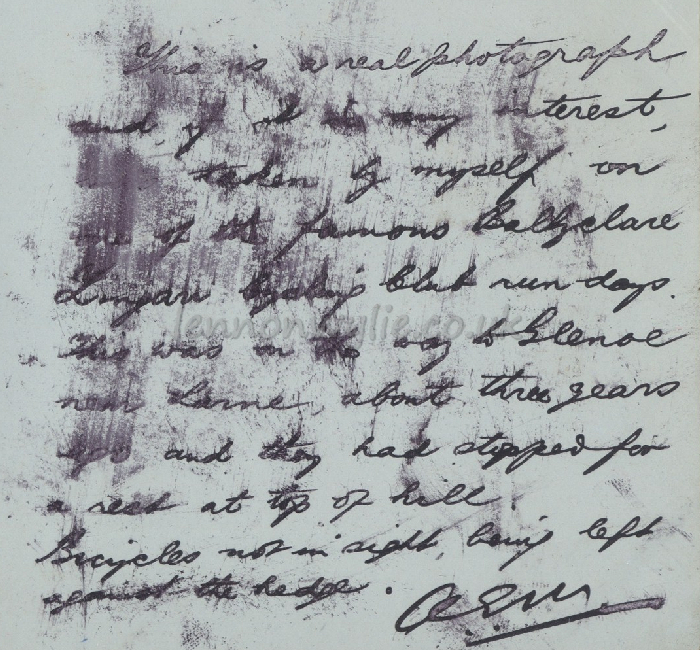 This is a real photograph
and, if of any interest,
taken by myself on
one of the famous Ballyclare
Cycling Club run days.
This was on the way to Glenoe
near Larne, about three years
ago and they had stopped for
a rest at top of hill
Bicycles not in sight, being left
against the hedge.
lennonwylie.co.uk